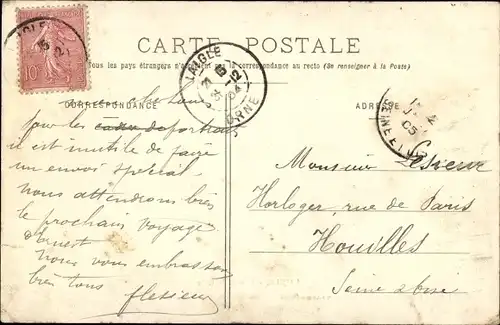 CARTE POSTALE
Tous les pays étrangers n'acceptent pas la correspondance au recto (Se renseigner à la Poste)
CORRESPONDANCE
ADRESSE
LAIGLE
ORNE
31 -12
04
10
Pour les
il est inutile de faire
un envoi spécial
nous attendrons
le prochain voyage
Ernest
nous vous embrassons
bien tous
Monsieur Lesieur
Horloger, rue de Paris
Houilles
Seine & Oise